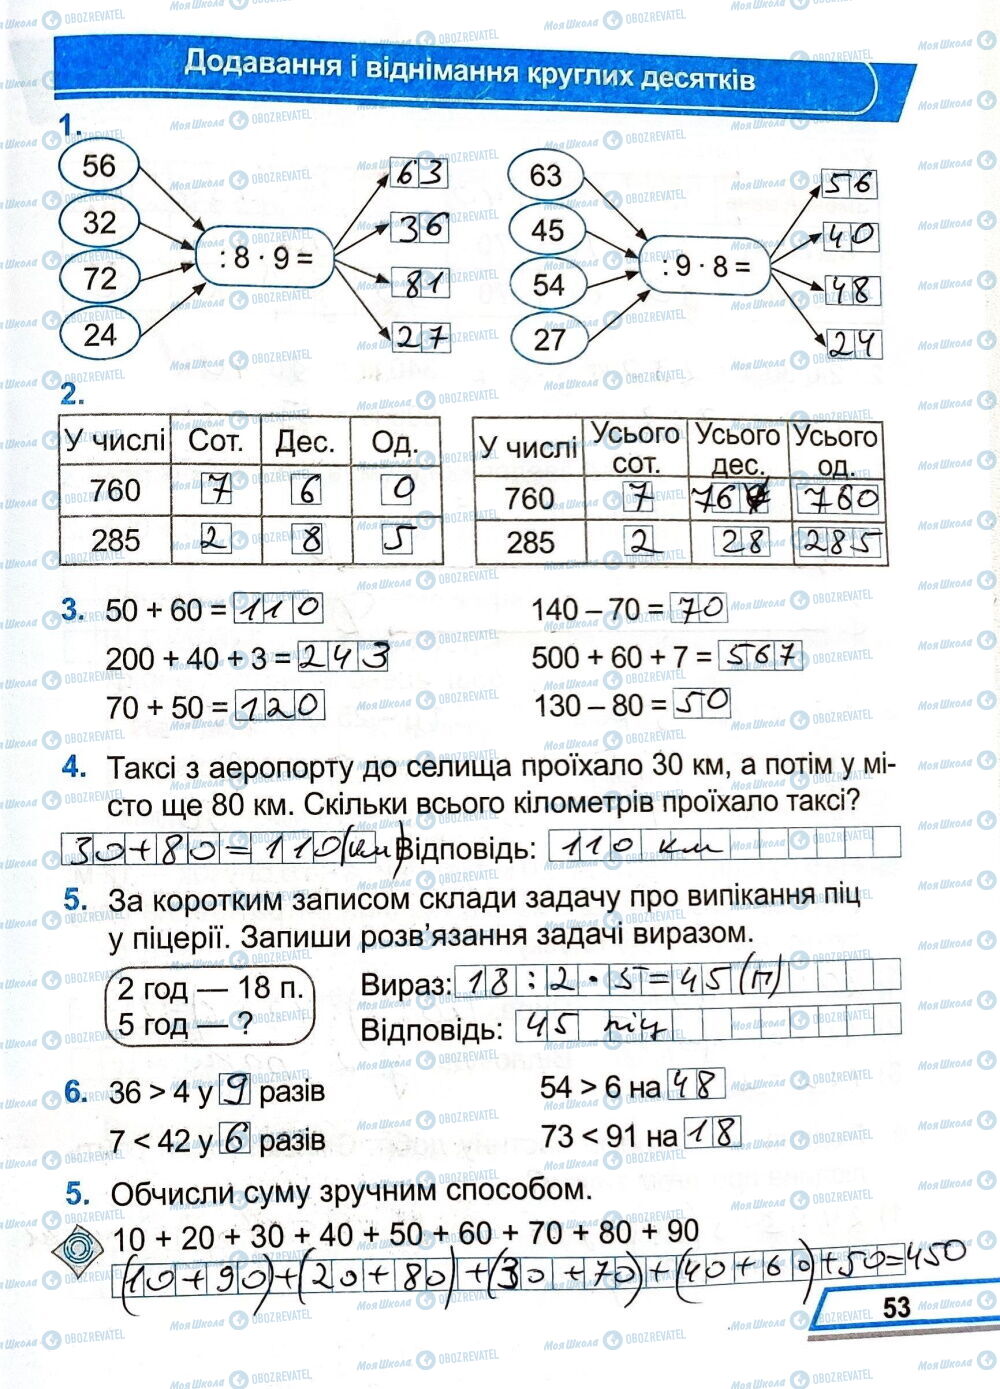 Додавання і віднімання круглих десятків
1.
56 63
32 36
72 81
24 27
: 8 · 9 =
63 56
45 40
54 48
27 24
: 9 · 8 =
2.
У числі Сот. Дес. Од.
760 7 6 0
285 2 8 5
У числі Усього сот. Усього дес. Усього од.
760 7 76 760
285 2 28 285
3. 50 + 60 = 110 140 – 70 = 70
200 + 40 + 3 = 243 500 + 60 + 7 = 567
70 + 50 = 120 130 – 80 = 50
4. Таксі з аеропорту до селища проїхало 30 км, а потім у мі-
сто ще 80 км. Скільки всього кілометрів проїхало таксі?
30+80=110(км) Відповідь: 110 км
5. За коротким записом склади задачу про випікання піц
у піцерії. Запиши розв'язання задачі виразом.
2 год — 18 п. Вираз: 18:2·5=45(п)
5 год — ? Відповідь: 45 піц
6. 36 > 4 у 9 разів 54 > 6 на 48
7 < 42 у 6 разів 73 < 91 на 18
5. Обчисли суму зручним способом.
10 + 20 + 30 + 40 + 50 + 60 + 70 + 80 + 90
(10+90)+(20+80)+(30+70)+(40+60)+50=450
53
МояШкола OBOZREVATEL